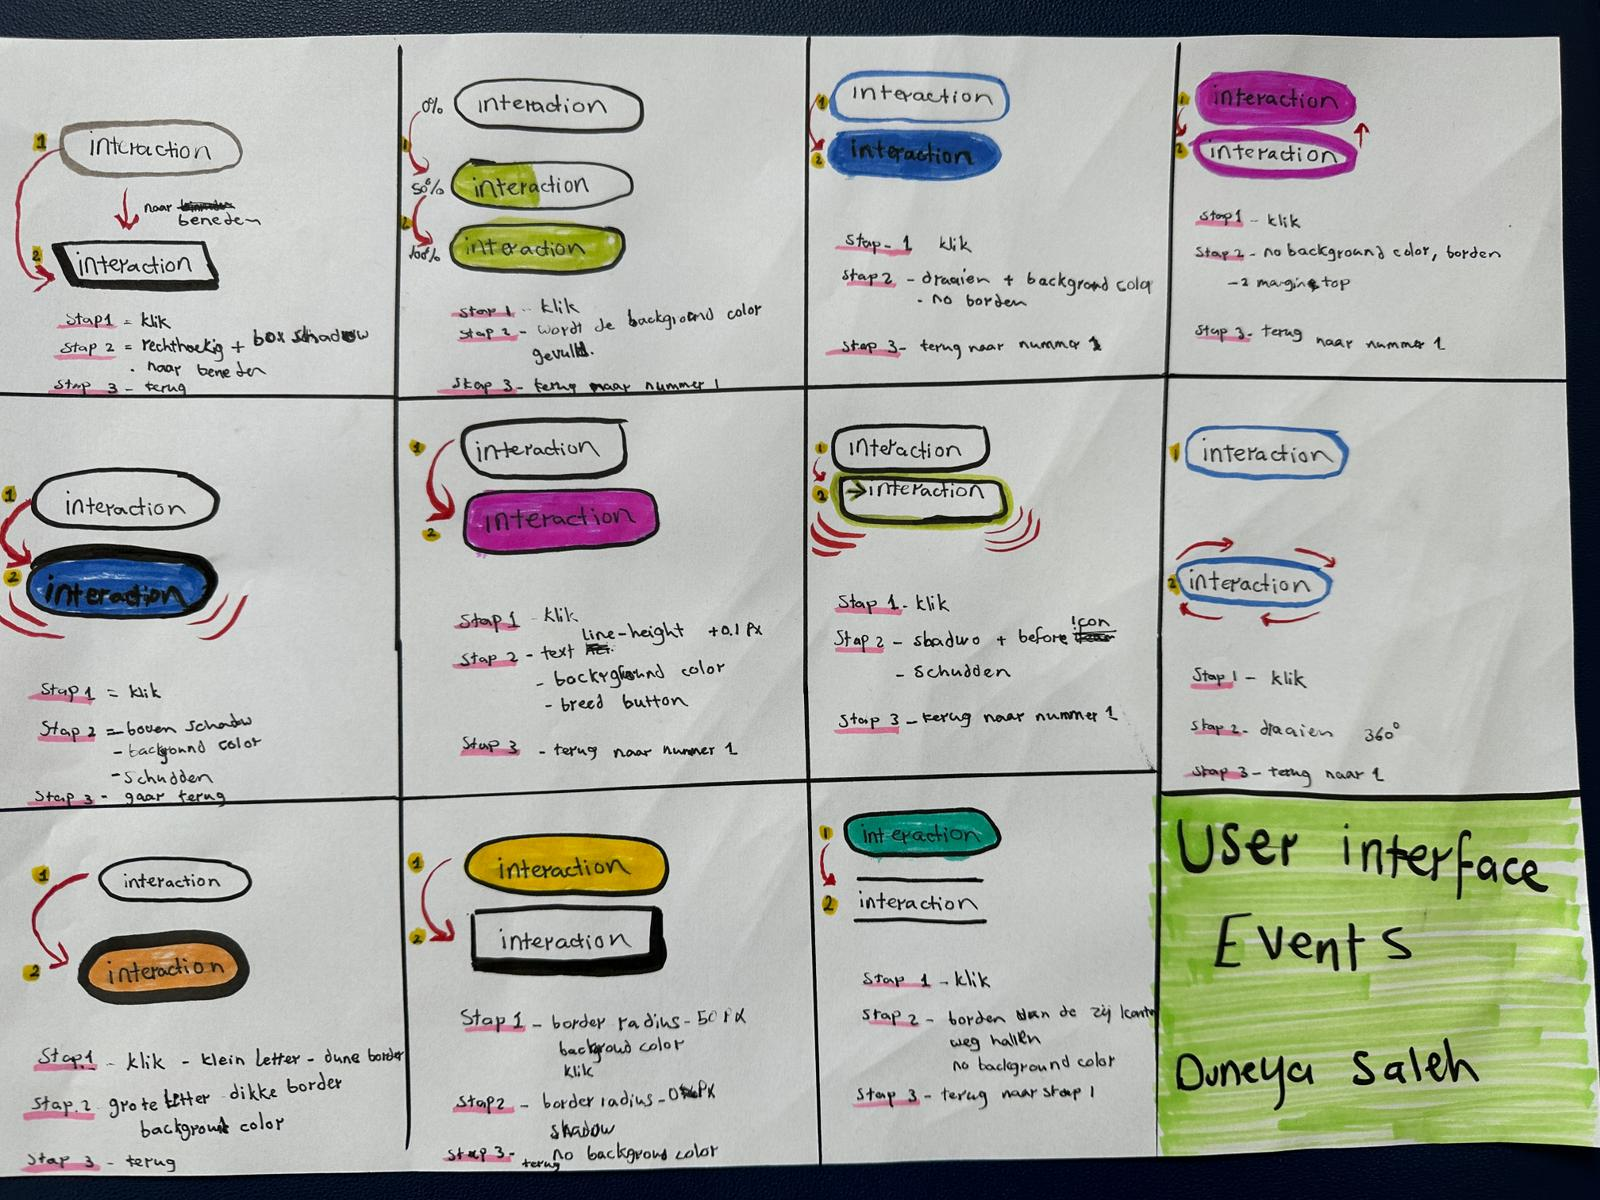 1
interaction
naar
beneden
2
interaction
Stap1 = klik
Stap 2 = rechthoekig + box schadow
. naar beneden
Stap 3 - terug
0%
interaction
1
50%
interaction
2
100%
interaction
Stap 1 - klik
Stap 2 - wordt de background color
gevuld.
Stap 3 - terug naar nummer 1
1
interaction
2
interaction
Stap - 1 klik
Stap 2 - draaien + backgrond color
- no borden
Stap 3 - terug naar nummer 1
1
interaction
2
interaction
Stap1 - klik
Stap 2 - no background color, borden
- 2 margin top
Stap 3 - terug naar nummer 1
1
interaction
2
interaction
Stap 1 = klik
Stap 2 = - boven schadw
- background color
- schudden
Stap 3 - gaar terug
1
interaction
2
interaction
Stap 1 - klik
Line-height +0.1 px
Stap 2 - text
- background color
- breed button
Stap 3 - terug naar nummer 1
1
interaction
2
→interaction
Stap 1 - klik
icon
Stap 2 - shaduw + before
- schudden
Stap 3 - terug naar nummer 1
1
interaction
2
interaction
Stap 1 - klik
Stap 2 - draaien 360°
Stap 3 - terug naar 1
1
interaction
2
interaction
Stap1 - klik - klein letter - dune border
Stap. 2 grote letter dikke border
background color
Stap 3 - terug
1
interaction
2
interaction
Stap 1 - border radius - 50 PX
backgroud color
klik
Stap2 - border radius - 0 PX
shadow
Stap 3 - terug no backgroud color
1
interaction
2
interaction
Stap 1 - klik
Stap 2 - borden van de zij kante
weg hallen
no background color
Stap 3 - terug naar stap 1
User interface
Events
Duneya Saleh